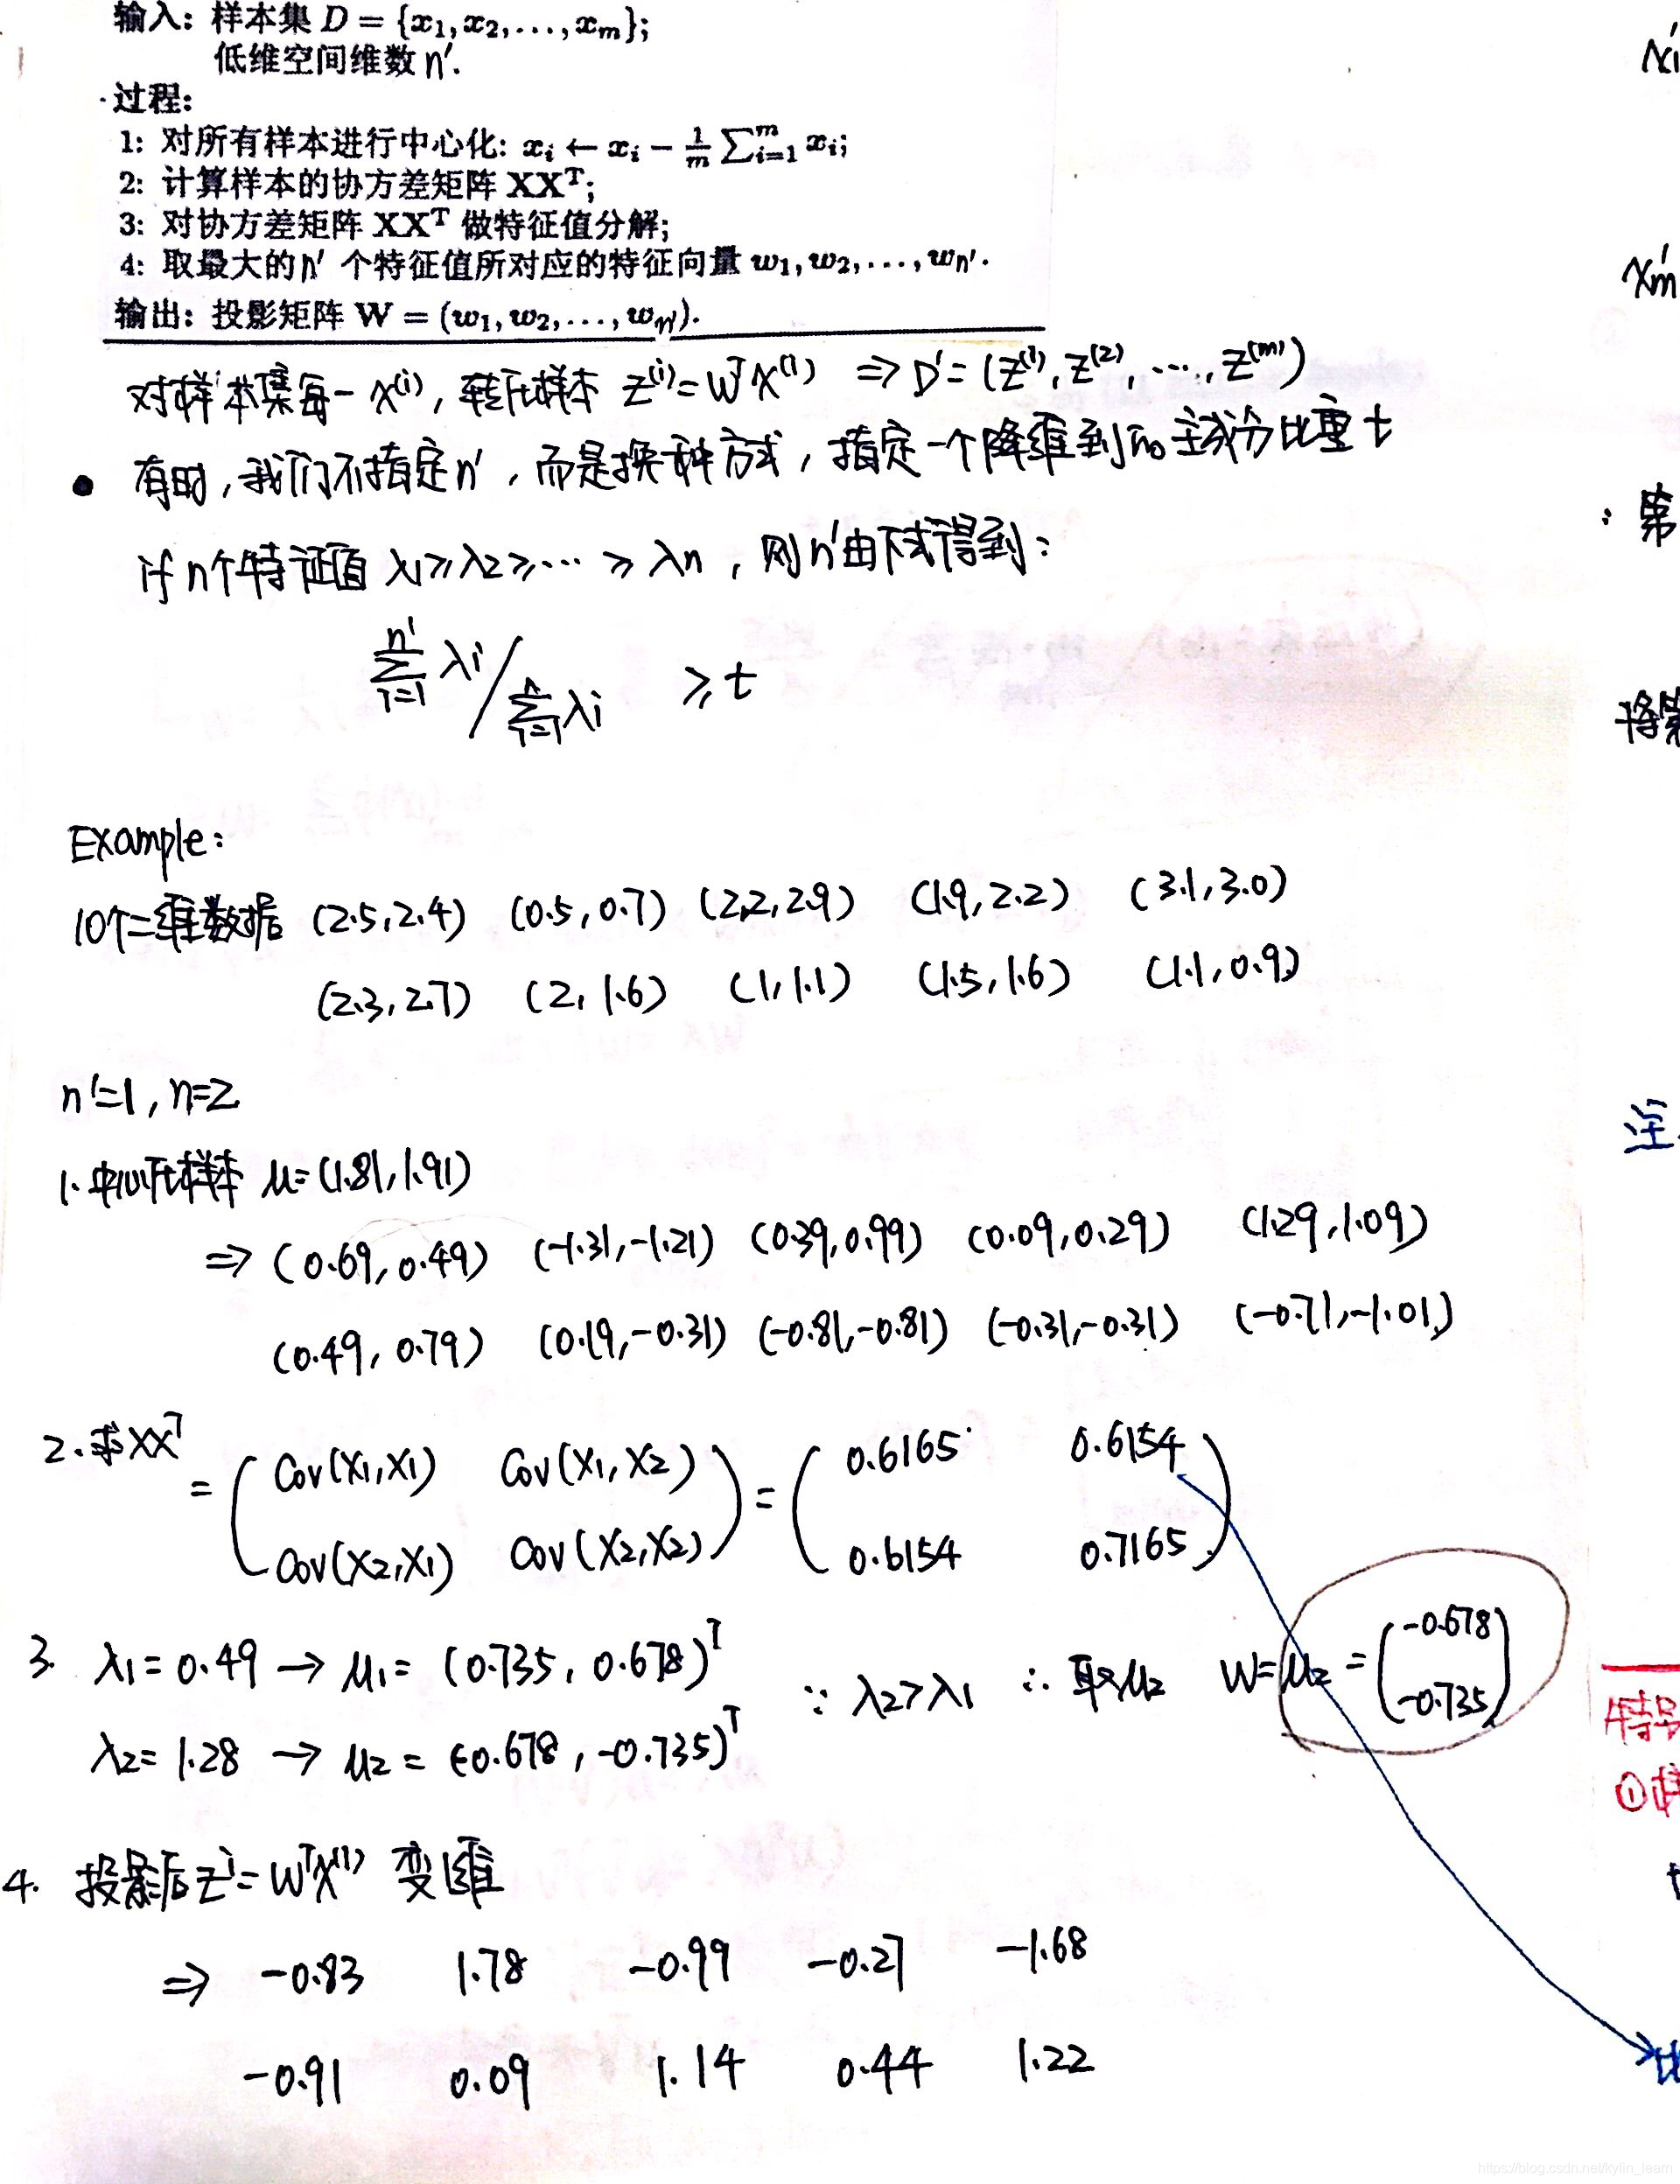 输入: 样本集 D = {x₁, x₂, ..., xₘ};
低维空间维数 n'.
过程:
1: 对所有样本进行中心化: xᵢ ← xᵢ − 1/m ∑ᵢ₌₁ᵐ xᵢ;
2: 计算样本的协方差矩阵 XXᵀ;
3: 对协方差矩阵 XXᵀ 做特征值分解;
4: 取最大的 n' 个特征值所对应的特征向量 w₁, w₂, ..., wₙ'.
输出: 投影矩阵 W = (w₁, w₂, ..., wₙ').
对样本集每一 x⁽ⁱ⁾, 转化样本 z⁽ⁱ⁾ = Wᵀx⁽ⁱ⁾ ⇒ D' = (z⁽¹⁾, z⁽²⁾, ..., z⁽ᵐ⁾)
● 有时, 我们不指定n', 而是换种方式, 指定一个降维到的主成分比重 t
if n个特征值 λ₁ ≥ λ₂ ≥ ... ≥ λn, 则n'由下式得到:
∑ᵢ₌₁ⁿ' λi / ∑ᵢ₌₁ⁿ λi ≥ t
Example:
10个二维数据 (2.5, 2.4) (0.5, 0.7) (2.2, 2.9) (1.9, 2.2) (3.1, 3.0)
(2.3, 2.7) (2, 1.6) (1, 1.1) (1.5, 1.6) (1.1, 0.9)
n'=1, n=2
1. 中心化样本 μ=(1.81, 1.91)
⇒ (0.69, 0.49) (-1.31, -1.21) (0.39, 0.99) (0.09, 0.29) (1.29, 1.09)
(0.49, 0.79) (0.19, -0.31) (-0.81, -0.81) (-0.31, -0.31) (-0.71, -1.01)
2. 求XXᵀ
= ( Cov(X1,X1) Cov(X1,X2) ) = ( 0.6165 0.6154 )
( Cov(X2,X1) Cov(X2,X2) ) ( 0.6154 0.7165 )
3. λ1 = 0.49 → μ1 = (0.735, 0.678)ᵀ
λ2 = 1.28 → μ2 = (-0.678, -0.735)ᵀ
∵ λ2 > λ1 ∴ 取μ2 W = μ2 = ( -0.678
-0.735 )
4. 投影后 zⁱ = Wᵀx⁽ⁱ⁾ 变1维
⇒ -0.83 1.78 -0.99 -0.27 -1.68
-0.91 0.09 1.14 0.44 1.22
xm'
: 第
将第
注.
https://blog.csdn.net/kylin_learn